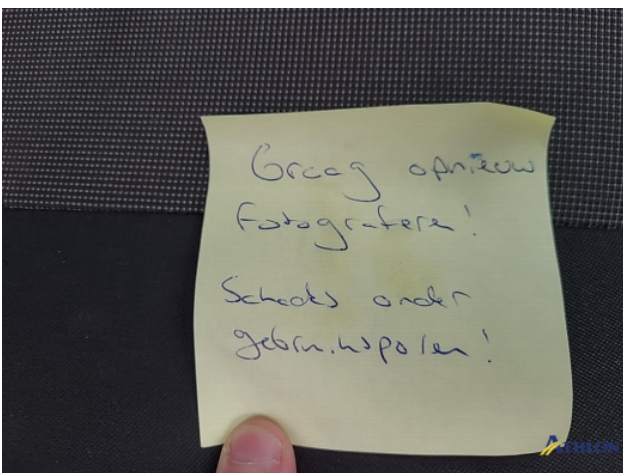 Graag opnieuw
fotograferen!
Schades onder
gebruikssporen!
ATHLON